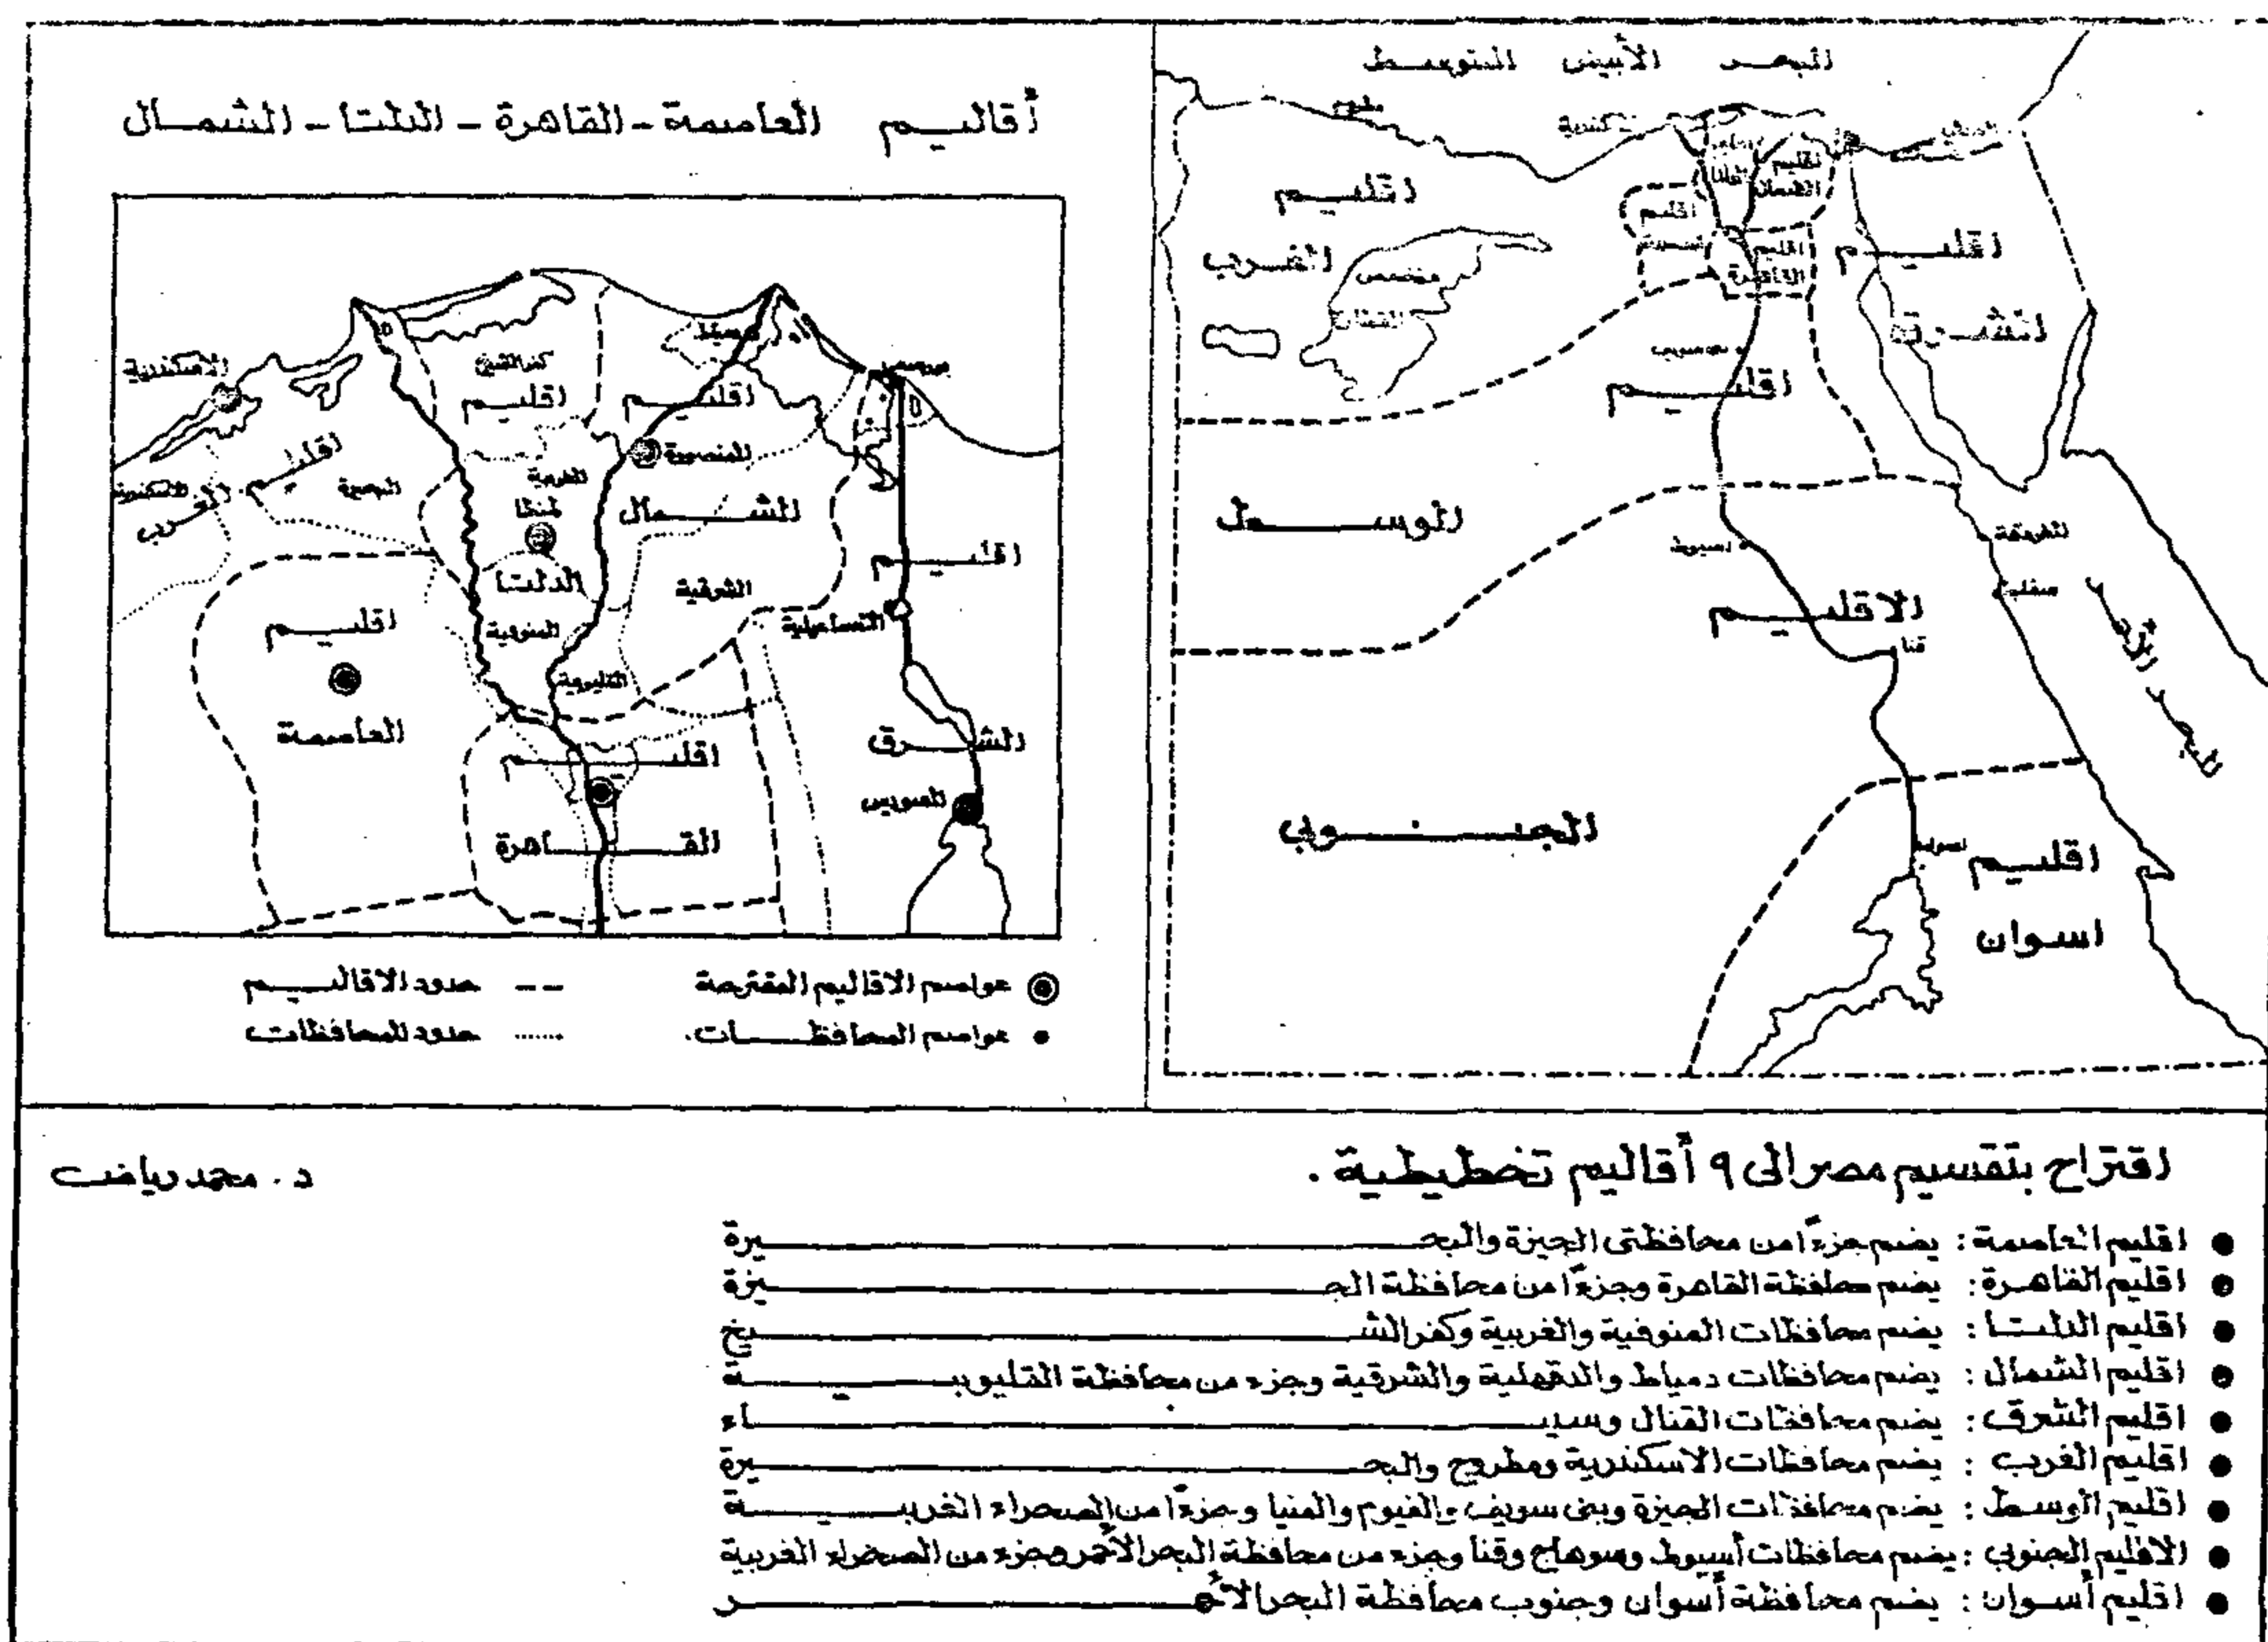 البحر الأبيض المتوسط
مطروح
العريش
اقليم
الغرب
منخفض
القطارة
اقليم
الشمال
اقليم
اقليم
القاهرة
اقليم
الشرق
بنى سويف
اقليم
الوسط
اسيوط
الغردقة
سفاجا
البحر الأحمر
الاقليم
قنا
الجنوبي
اسوان
اقليم
اسوان
أقاليم العاصمة - القاهرة - الدلتا - الشمال
الاسكندرية
كفر الشيخ
اقليم
اقليم
بورسعيد
المنصورة
الغربية
طنطا
اقليم
الغرب
البحيرة
الاسكندرية
الشمال
اقليم
الدلتا
الشرقية
المنوفية
الاسماعيلية
اقليم
العاصمة
القليوبية
اقليم
القاهرة
الشرق
السويس
عواصم الاقاليم المقترحة
حدود الاقاليم
عواصم المحافظات.
حدود المحافظات
اقتراح بتقسيم مصر الى ٩ أقاليم تخطيطية .
د. محمد رياض
● اقليم العاصمة : يضم جزءًا من محافظتى الجيزة والبحيرة
● اقليم القاهرة : يضم محافظة القاهرة وجزءًا من محافظة الجيزة
● اقليم الدلتا : يضم محافظات المنوفية والغربية وكفر الشيخ
● اقليم الشمال : يضم محافظات دمياط والدقهلية والشرقية وجزء من محافظة القليوبية
● اقليم الشرق : يضم محافظات القنال وسيناء
● اقليم الغرب : يضم محافظات الاسكندرية ومطروح والبحيرة
● اقليم الوسط : يضم محافظات الجيزة وبنى سويف والفيوم والمنيا وجزءًا من الصحراء الغربية
● الاقليم الجنوبي : يضم محافظات أسيوط وسوهاج وقنا وجزء من محافظة البحر الأحمر وجزء من الصحراء الغربية
● اقليم أسوان : يضم محافظة أسوان وجنوب محافظة البحر الأحمر